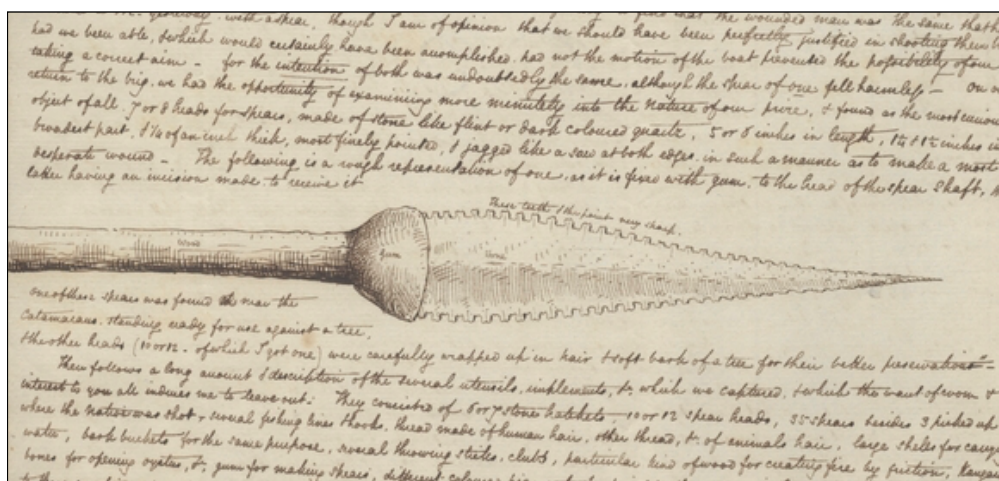 with a spear, though I am of opinion that we should have been perfectly justified in shooting them
had we been able, & which would certainly have been accomplished, had not the motion of the boat prevented the possibility of our
taking a correct aim - for the intention of both was undoubtedly the same, although the spear of one fell harmless - On our
return to the brig, we had the opportunity of examining more minutely into the nature of our prize, & found as the most curious
object of all, 7 or 8 heads for spears, made of stone like flint or dark coloured quartz, 5 or 6 inches in length, inches in
broadest part, & 1/4 of an inch thick, most finely pointed, & jagged like a saw at both edges, in such a manner as to make a most
desperate wound - The following is a rough representation of one, as it is fixed with gum, to the head of the spear shaft,
latter having an incision made to receive it
These teeth & the point very sharp.
Wood
Gum
Stone
One of these spears was found the
Catamarans, standing ready for use against a tree,
the other heads (10 or 12 - of which I got one) were carefully wrapped up in hair & soft bark of a tree for their better preservation" -
Then follows a long account & description of the several utensils, implements, &c which we captured, & which the want of room &
interest to you all induces me to leave out: They consisted of 6 or 7 stone hatchets - 10 or 12 spear heads, 35 spears besides 3 picked up
where the native was shot, several fishing lines & hooks, thread made of human hair, other thread, &c of animals hair, large shells for carrying
water, bark buckets for the same purpose, several throwing sticks, clubs, particular kind of wood for creating fire by friction,
bones for opening oysters, &c, gum for making spears, different